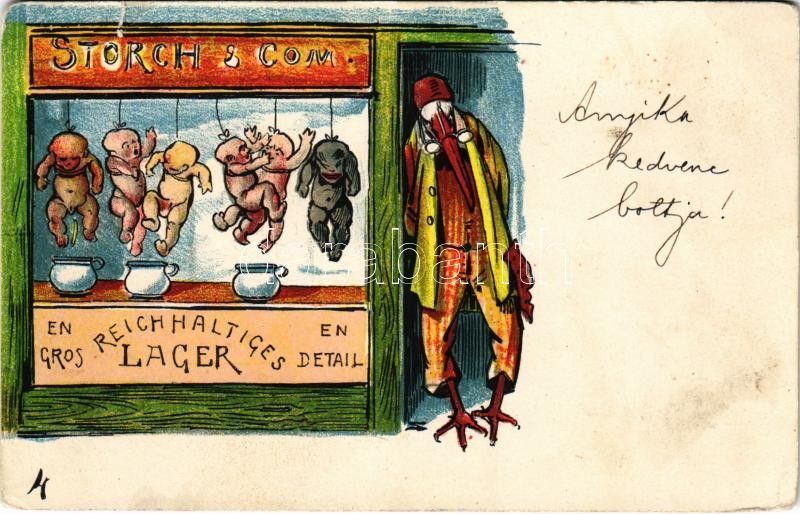 STORCH & COM.
EN GROS
REICHHALTIGES
LAGER
EN DETAIL
Annyika
kedvenc
boltja!
darabanth